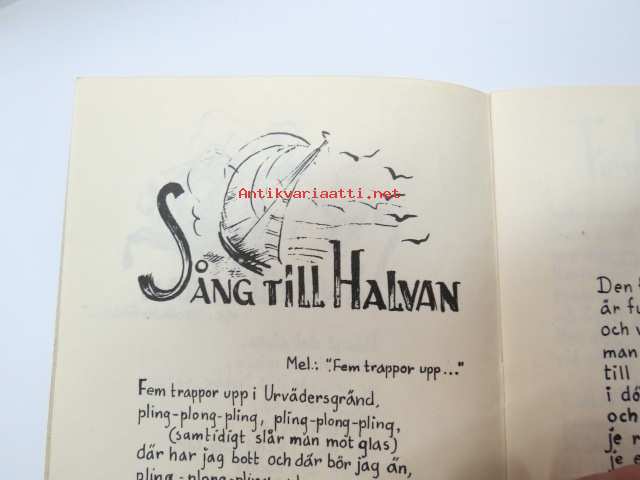 Antikvariaatti.net
SÅNG TILL HALVAN
Mel.: "Fem trappor upp..."
Fem trappor upp i Urvädersgränd,
pling-plong-pling, pling-plong-pling,
(samtidigt slår man mot glas)
där har jag bott och där bör jag än,
pling-plong-pling
Den
är
och
man
till
i
och
je
je